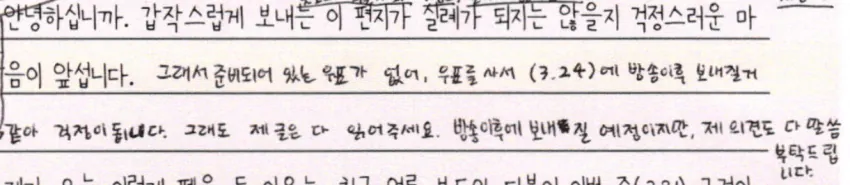 안녕하십니까. 갑작스럽게 보내는 이 편지가 실례가 되지는 않을지 걱정스러운 마
음이 앞섭니다. 그래서 준비되어 있는 우표가 없어, 우표를 사서 (3.24)에 방송이후 보내질거
같아 걱정이 됩니다. 그래도 제 글은 다 읽어주세요. 방송이후에 보내질 예정이지만, 제 의견도 다 말씀
부탁드립
니다.